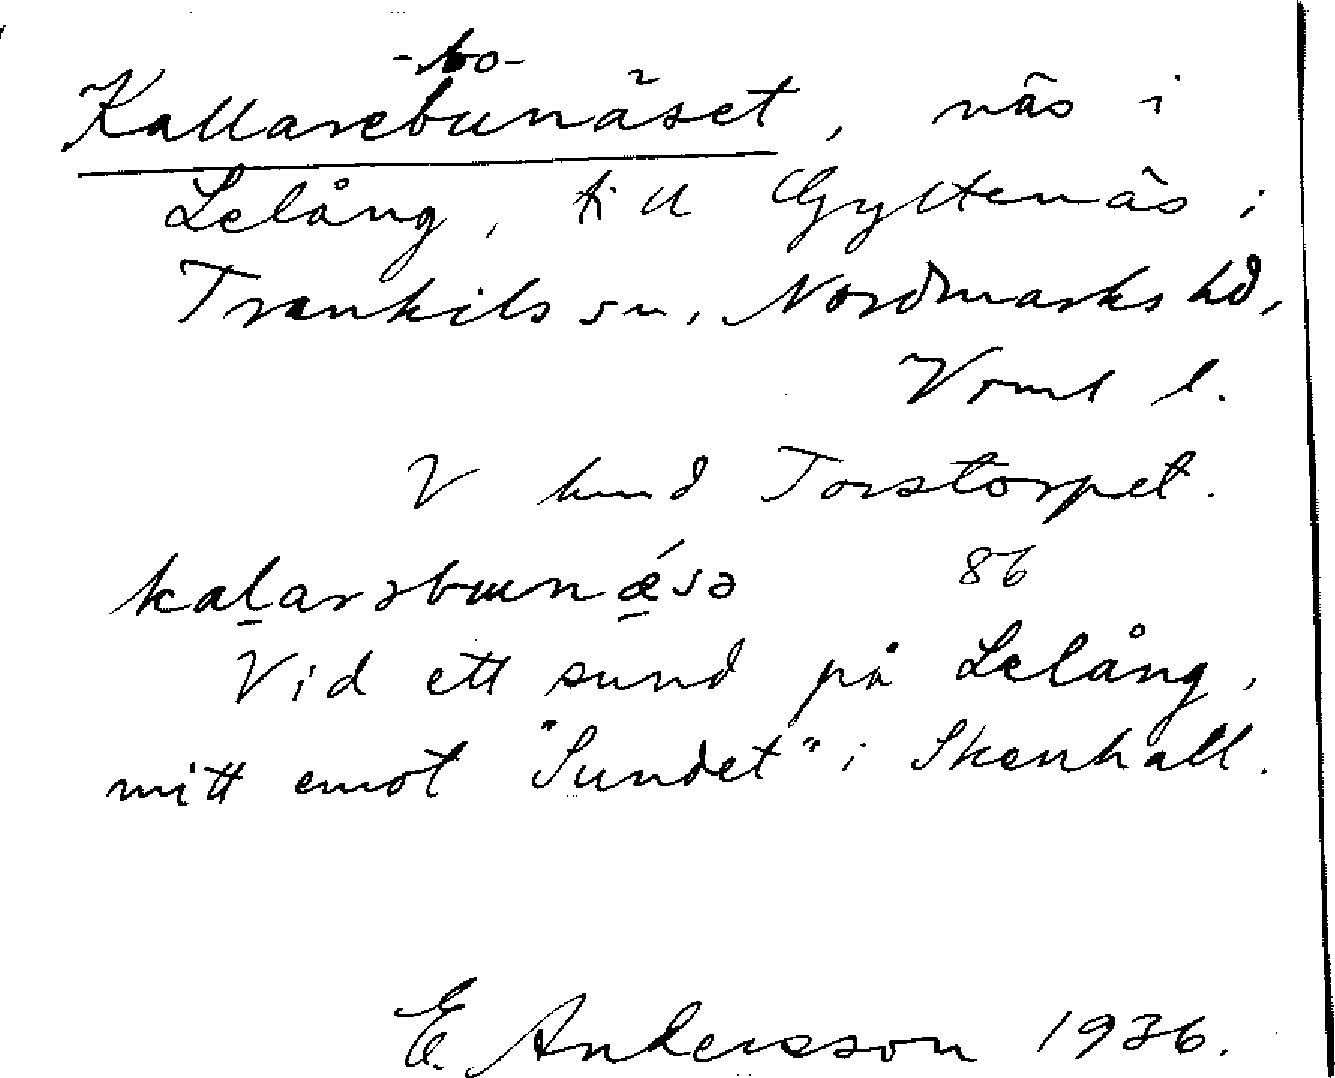 -bo-
Kallarebunäset, näs i
Lelång, till Gyltenäs i
Trankils sn, Nordmarks hd,
Vrml l.
V hmd Torstorpet.
kaḻarəbɯnǽsə 86
Vid ett sund på Lelång,
mitt emot "Sundet" i Skenhall.
E. Andersson 1936.